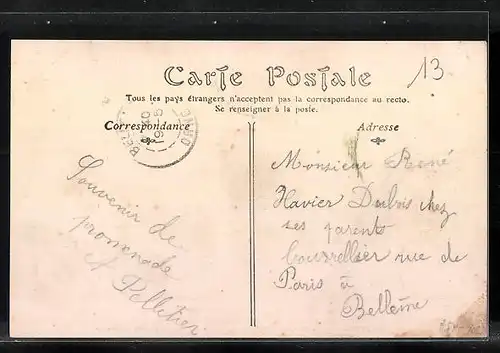 Carte Postale
13
Tous les pays étrangers n'acceptent pas la correspondance au recto.
Se renseigner à la poste.
Correspondance
Adresse
ORNE
Souvenir de
promenade
Pelletier
Monsieur René
Xavier Dubois chez
ses parents
bourrellier rue de
Paris à
Bellême